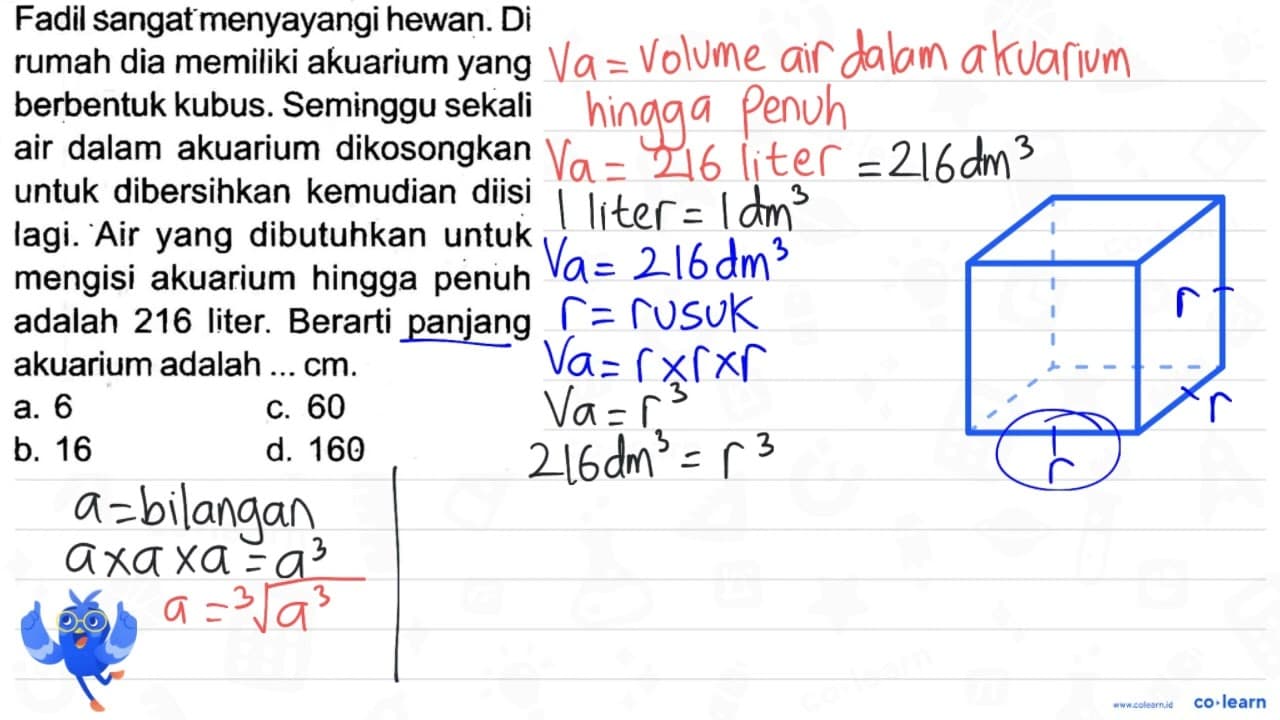 Fadil sangat menyayangi hewan. Di
rumah dia memiliki akuarium yang
berbentuk kubus. Seminggu sekali
air dalam akuarium dikosongkan
untuk dibersihkan kemudian diisi
lagi. Air yang dibutuhkan untuk
mengisi akuarium hingga penuh
adalah 216 liter. Berarti panjang
akuarium adalah ... cm.
a. 6 c. 60
b. 16 d. 160
a = bilangan
a x a x a = a³
a = ³√a³
Va = Volume air dalam akuarium
hingga Penuh
Va = 216 liter = 216 dm³
1 liter = 1 dm³
Va = 216 dm³
r = rusuk
Va = r x r x r
Va = r³
216 dm³ = r³
r
r
r
www.colearn.id co·learn